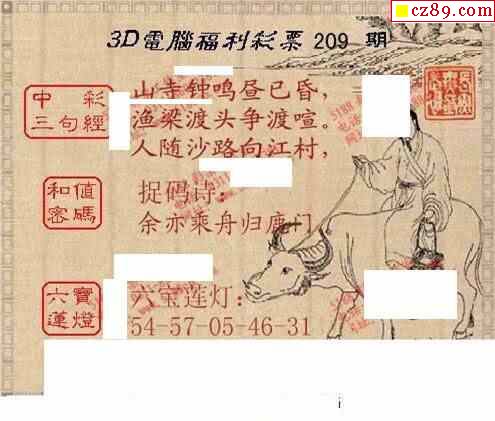 cz89.com
3D電腦福利彩票 209 期
中彩
三句經
山寺钟鸣昼已昏，
渔梁渡头争渡喧。
人随沙路向江村，
和值
密碼
捉码诗：
余亦乘舟归鹿门
六寶
蓮燈
六宝莲灯：
54-57-05-46-31